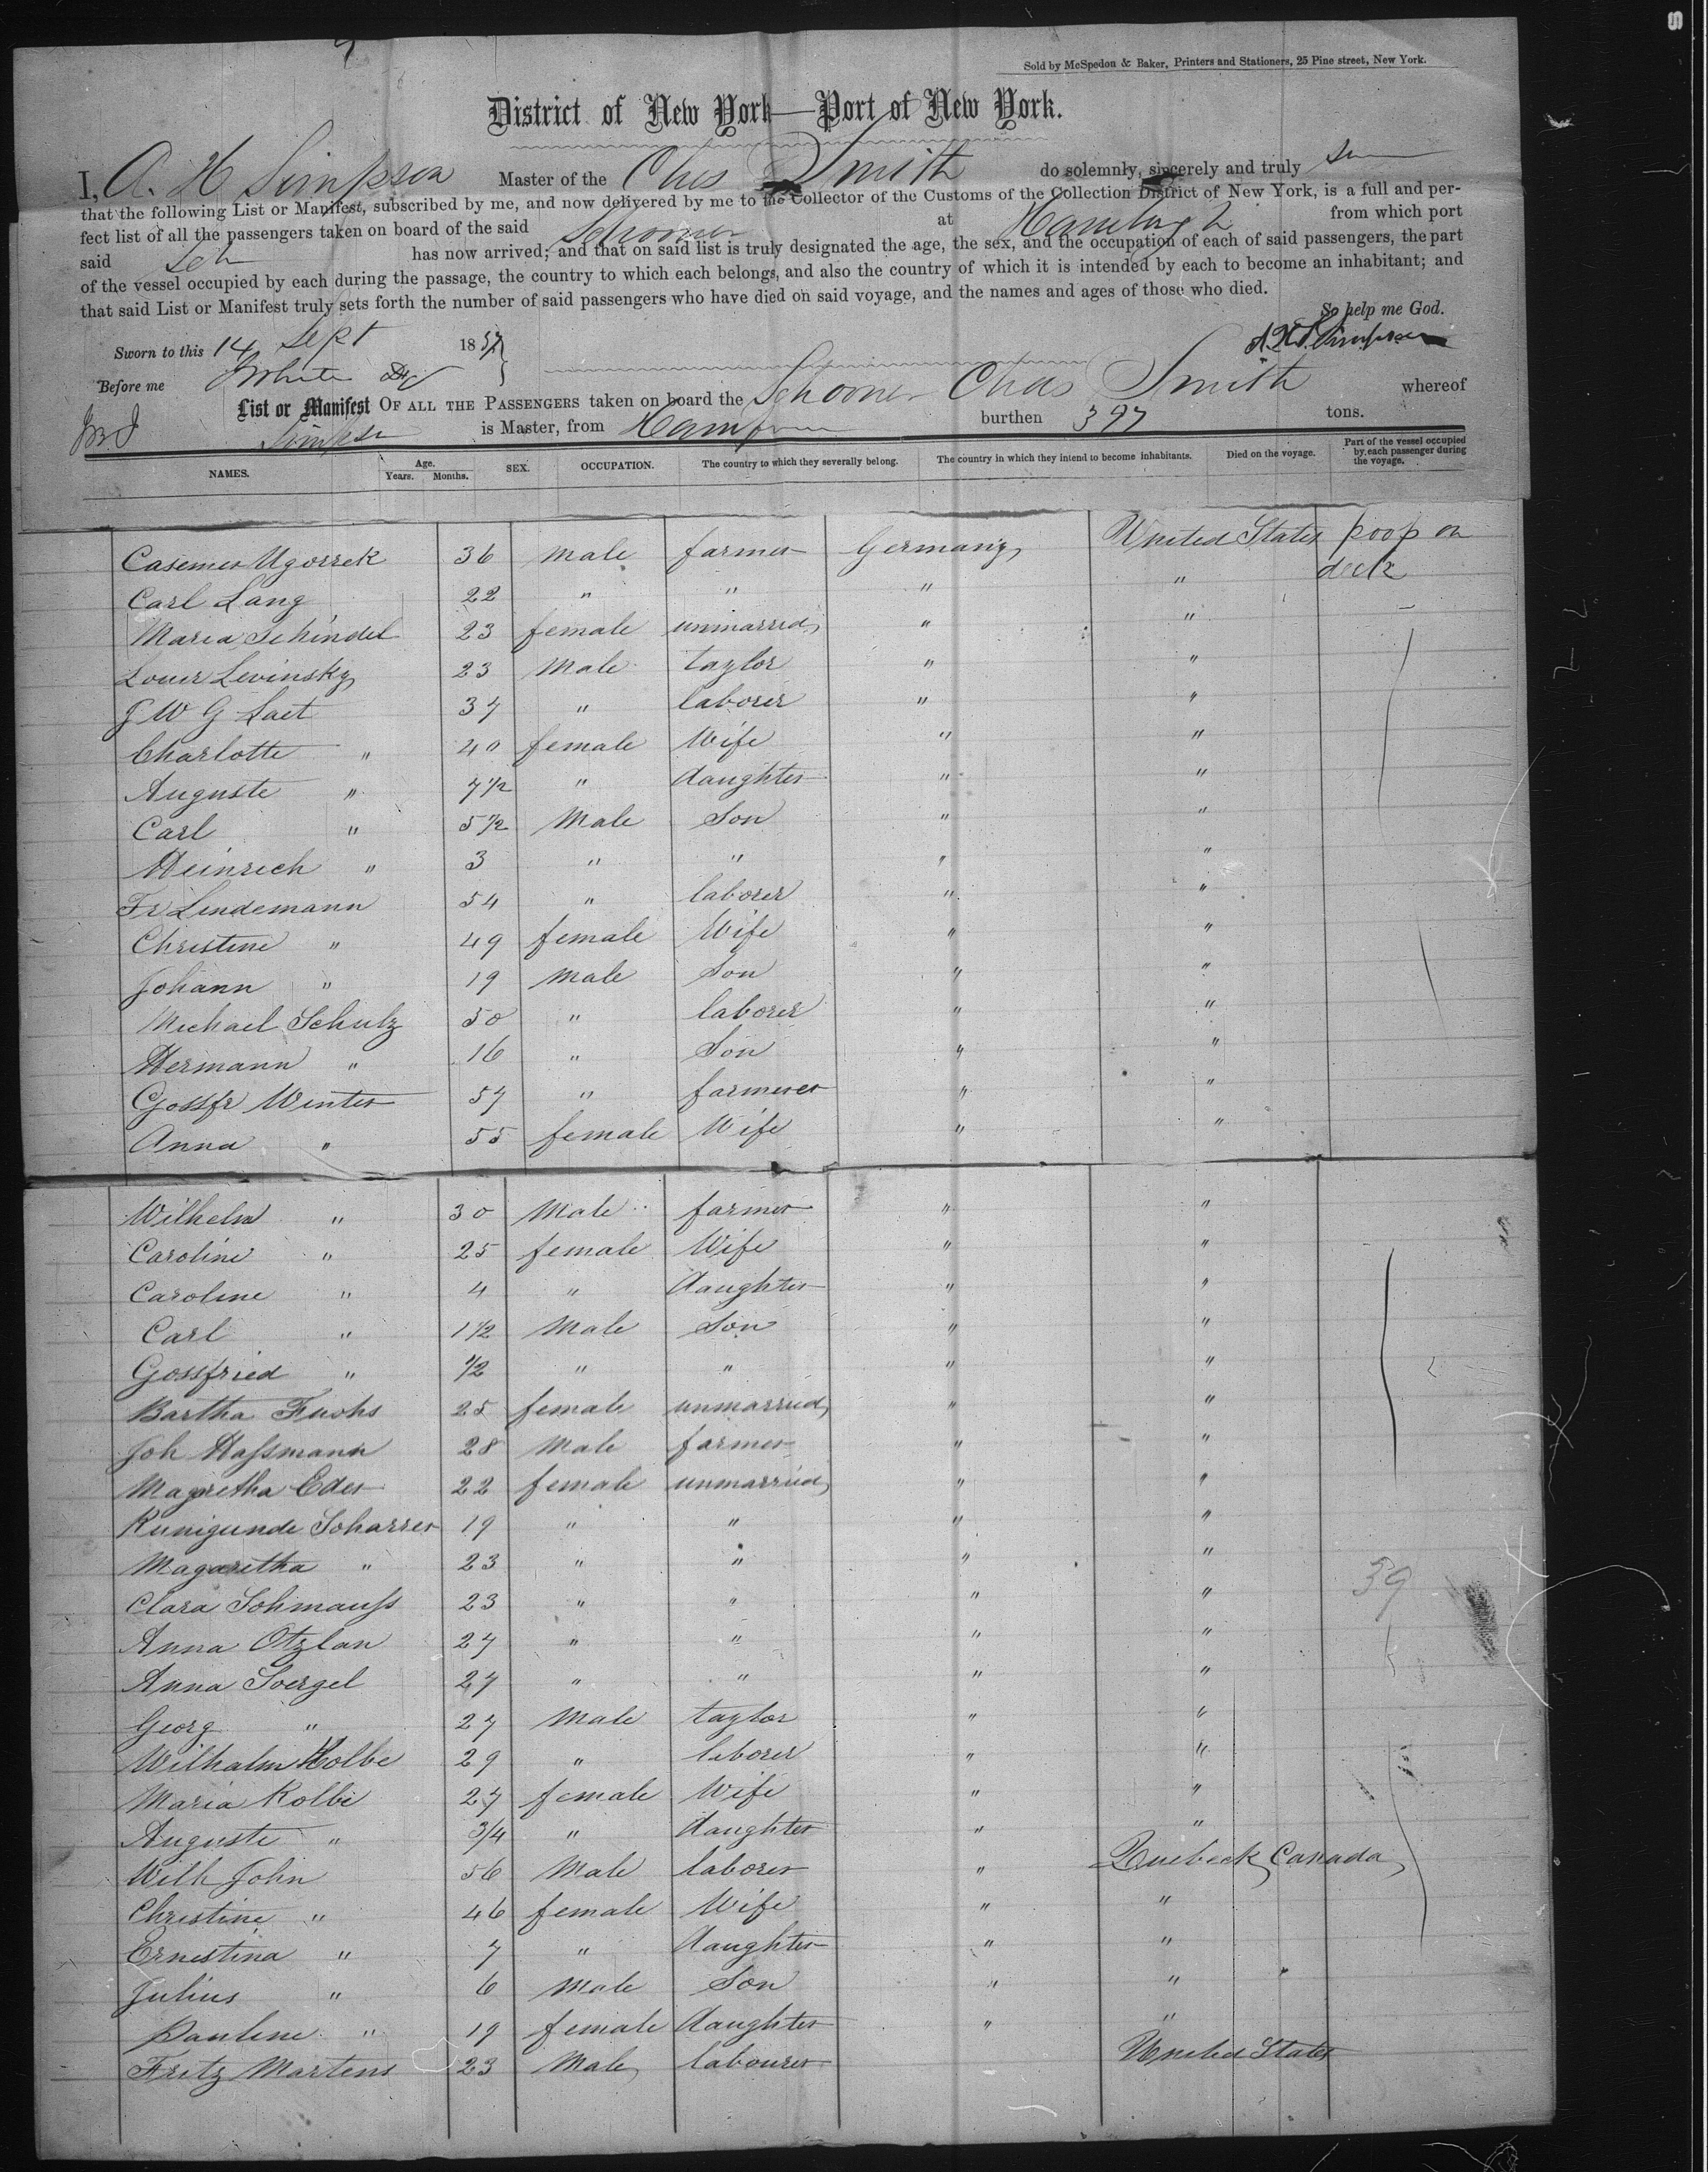 Sold by McSpedon & Baker, Printers and Stationers, 25 Pine street, New York.
District of New York—Port of New York.
I, A. H Simpson Master of the Chas Smith do solemnly, sincerely and truly
that the following List or Manifest, subscribed by me, and now delivered by me to the Collector of the Customs of the Collection District of New York, is a full and per-
fect list of all the passengers taken on board of the said Schooner at Hamburgh from which port
said Sch has now arrived; and that on said list is truly designated the age, the sex, and the occupation of each of said passengers, the part
of the vessel occupied by each during the passage, the country to which each belongs, and also the country of which it is intended by each to become an inhabitant; and
that said List or Manifest truly sets forth the number of said passengers who have died on said voyage, and the names and ages of those who died.
So help me God.
Sworn to this 14 Sept 1857 A. H. Simpson
Before me White
List or Manifest OF ALL THE PASSENGERS taken on board the Schooner Chas Smith whereof
Simpson is Master, from Ham burthen 397 tons.
NAMES. Age. Years. Months. SEX. OCCUPATION. The country to which they severally belong. The country in which they intend to become inhabitants. Died on the voyage. Part of the vessel occupied by each passenger during the voyage.
Casemer Ugorrek 36 male farmer Germany United States poop on
deck
Carl Lang 22 " " " "
Maria Schindel 23 female unmarried " "
Louer Levinsky 23 Male taylor " "
J W G Laet 37 " laborer " "
Charlotte " 40 female Wife " "
Auguste " 7 1/2 " daughter " "
Carl " 5 1/2 Male Son " "
Heinrich " 3 " " " "
Fr Lindemann 54 " laborer " "
Christine " 49 female Wife " "
Johann " 19 male Son " "
Michael Schulz 50 " laborer " "
Hermann " 16 " Son " "
Gossfr Winter 57 " farmerer " "
Anna " 55 female Wife " "
Wilhelm " 30 Male farmer " "
Caroline " 25 female Wife " "
Caroline " 4 " daughter " "
Carl " 1 1/2 Male Son " "
Gossfried " 1/2 " " " "
Bartha Fuchs 25 female unmarried " "
Joh Hassmann 28 Male farmer " "
Magretha Eder 22 female unmarried " "
Kunigunde Scharrer 19 " " " "
Magaretha " 23 " " " "
Clara Schmauss 23 " " " " 39
Anna Otzlan 27 " " " "
Anna Soergel 27 " " " "
Georg " 27 Male taylor " "
Wilhalm Kolbe 29 " laborer " "
Maria Kolbe 27 female Wife " "
Auguste " 3/4 " daughter " "
Wilh John 56 Male laborer " Quebeck, Canada,
Christine " 46 female Wife " "
Ernestina " 7 " daughter " "
Julius " 6 Male Son " "
Pauline " 19 female daughter " "
Fritz Martens 23 Male labourer United States